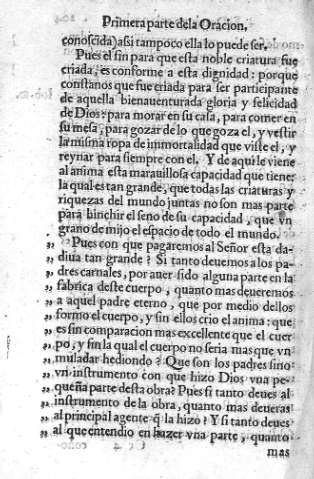 Primera parte dela Oracion,
conoscida) assi tampoco ella lo puede ser.
Pues el fin para que esta noble criatura fue
criada, es conforme a esta dignidad: porque
constanos que fue criada para ser participante
de aquella bienauenturada gloria y felicidad
de Dios: para morar en su casa, para comer en
su mesa, para gozar de lo que goza el, y vestir
la misma ropa de inmortalidad que viste el, y
reynar para siempre con el. Y de aqui le viene
al anima esta marauillosa capacidad que tiene
la qual es tan grande, que todas las criaturas y
riquezas del mundo juntas no son mas parte
para hinchir el seno de su capacidad, que vn
grano de mijo el espacio de todo el mundo.
„ Pues con que pagaremos al Señor esta da-
„ diua tan grande? Si tanto deuemos a los pa-
„ dres carnales, por auer sido alguna parte en la
„ fabrica deste cuerpo, quanto mas deueremos
„ a aquel padre eterno, que por medio dellos
„ formo el cuerpo, y sin ellos crio el anima: que
„ es sin comparacion mas excelente que el cuer
„ po, y sin la qual el cuerpo no seria mas que vn
„ muladar hediondo? Que son los padres sino
„ vn instrumento con que hizo Dios vna pe-
„ queña parte desta obra? Pues si tanto deues al
„ instrumento de la obra, quanto mas deueras
„ al principal agente q̃ la hizo? Y si tanto deues
„ al que entendio en hazer vna parte, quanto
mas